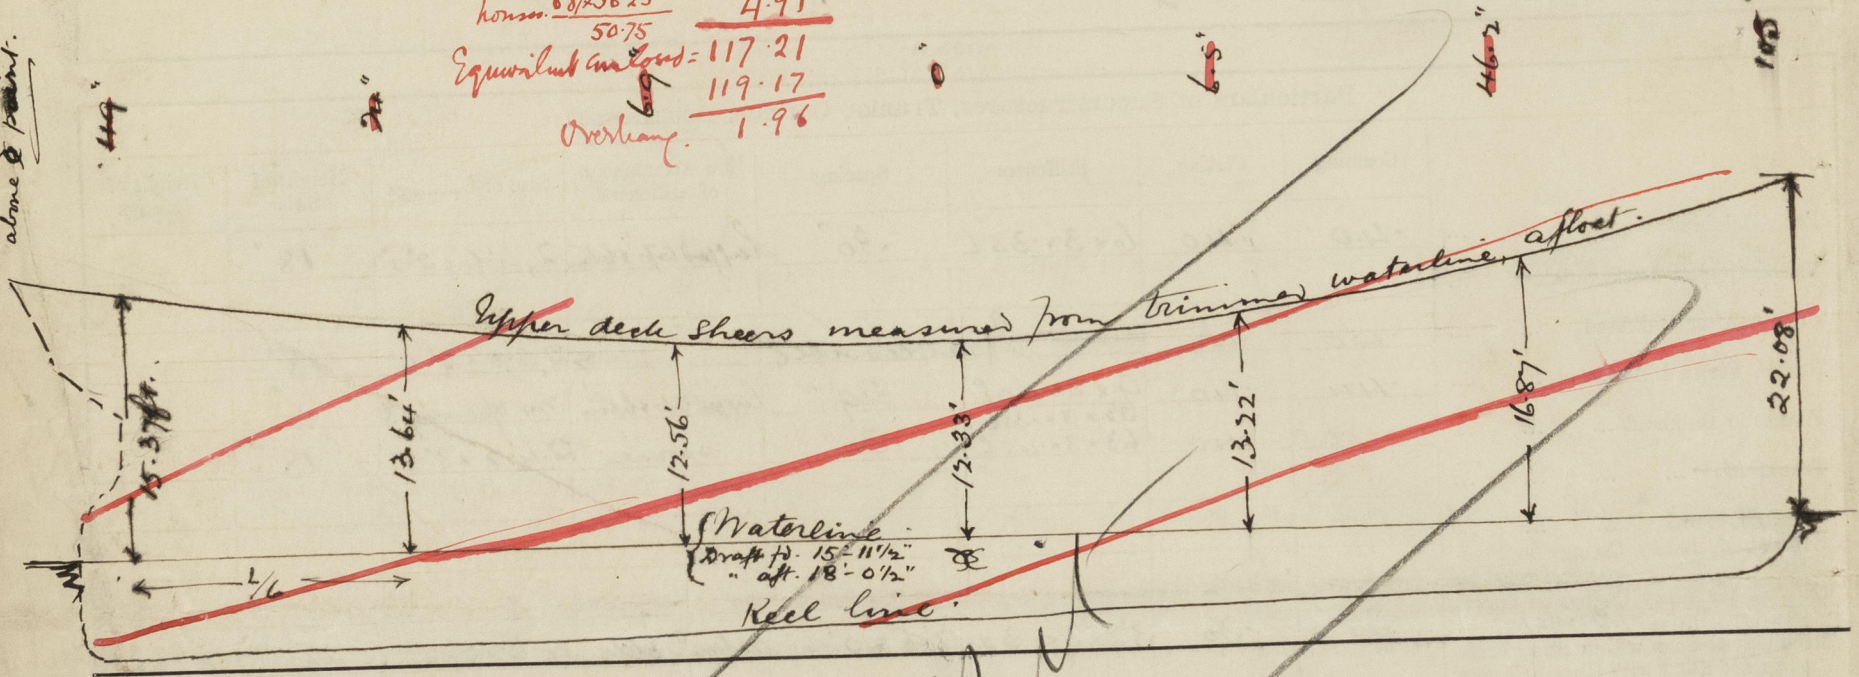 houses.
50.75
4.91
Equivalent enclosed = 117.21
119.17
Overhang. 1.96
above
49"
24"
6.9"
0"
6.5"
46.2"
Upper deck sheers measured from trimmed waterline, afloat.
15.37ft.
13.64'
12.56'
12.33'
13.22'
16.87'
22.08'
L/6
Waterline
Draft fd. 15'-11½"
" aft. 18'-0½"
Keel line.